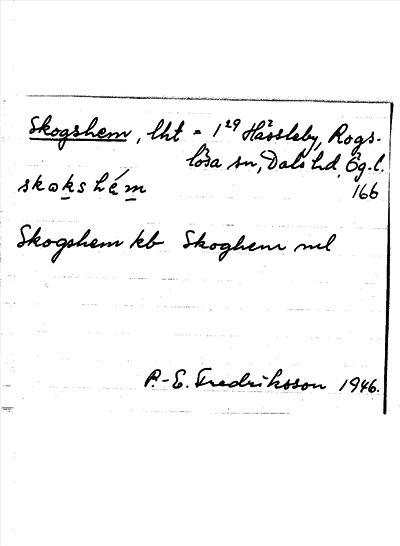 Skogshem, lht = 1²⁹ Hässleby, Rogs-
lösa sn, Dals hd, Ög. l.
skωkshém 166
Skogshem kb Skoghem ml
P.-E. Fredriksson 1946.